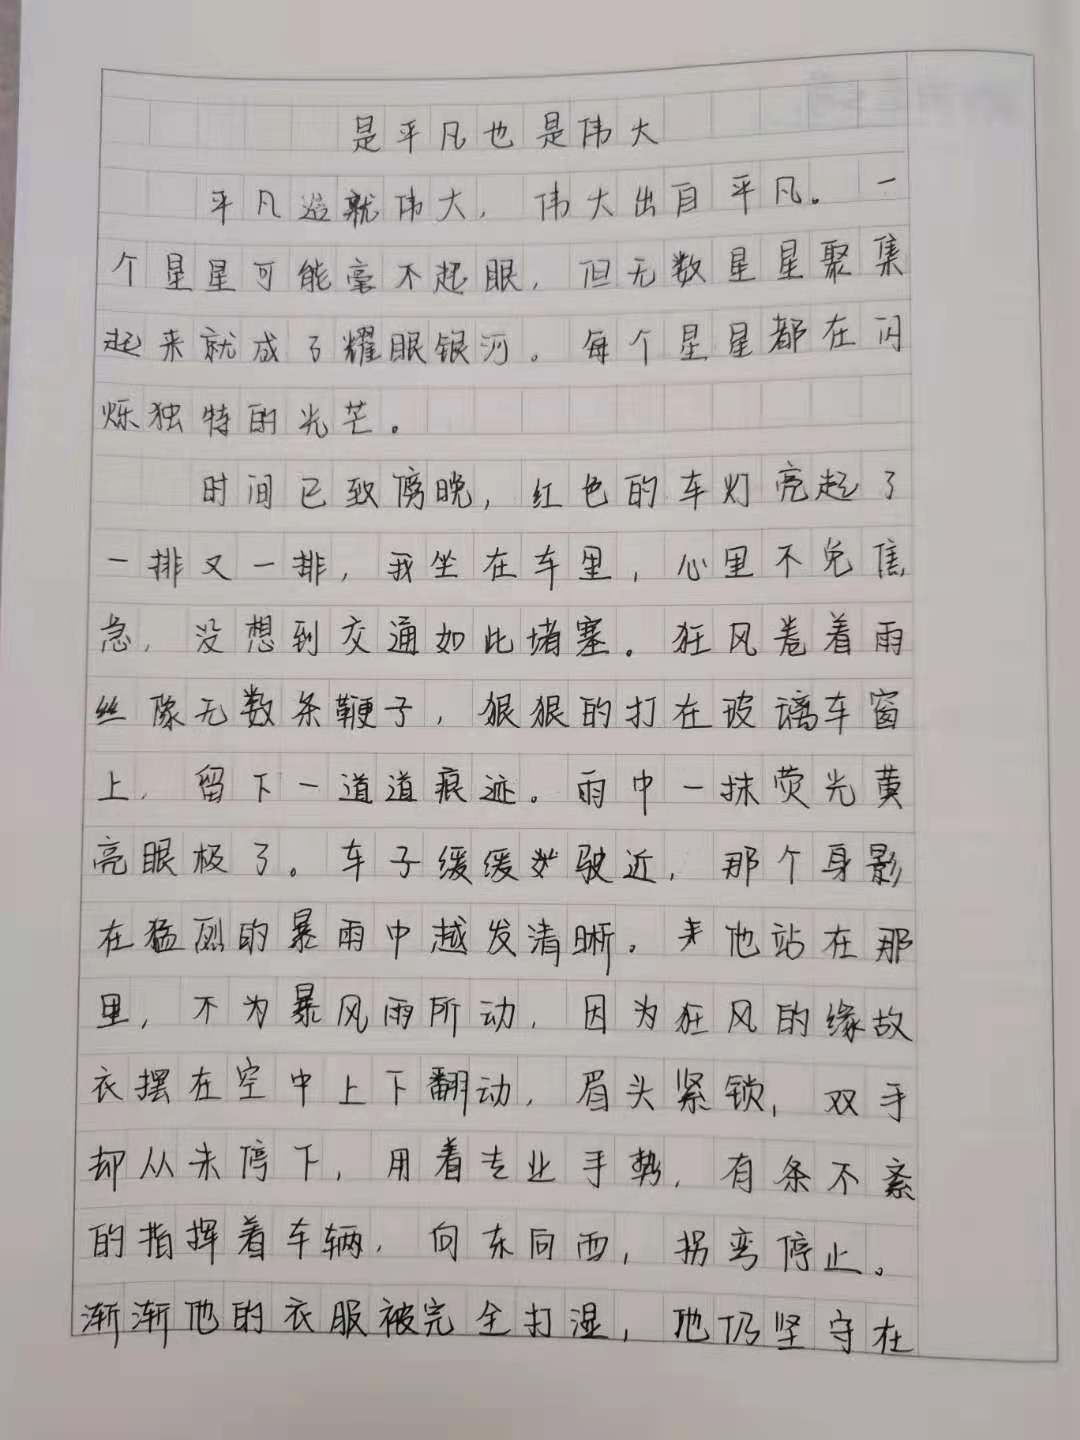 是平凡也是伟大
平凡造就伟大，伟大出自平凡。一
个星星可能毫不起眼，但无数星星聚集
起来就成了耀眼银河。每个星星都在闪
烁独特的光芒。
时间已致傍晚，红色的车灯亮起了
一排又一排，我坐在车里，心里不免焦
急，没想到交通如此堵塞。狂风卷着雨
丝像无数条鞭子，狠狠的打在玻璃车窗
上，留下一道道痕迹。雨中一抹荧光黄
亮眼极了。车子缓缓驶近，那个身影
在猛烈的暴雨中越发清晰。他站在那
里，不为暴风雨所动，因为狂风的缘故
衣摆在空中上下翻动，眉头紧锁，双手
却从未停下，用着专业手势，有条不紊
的指挥着车辆，向东向西，拐弯停止。
渐渐他的衣服被完全打湿，他仍坚守在